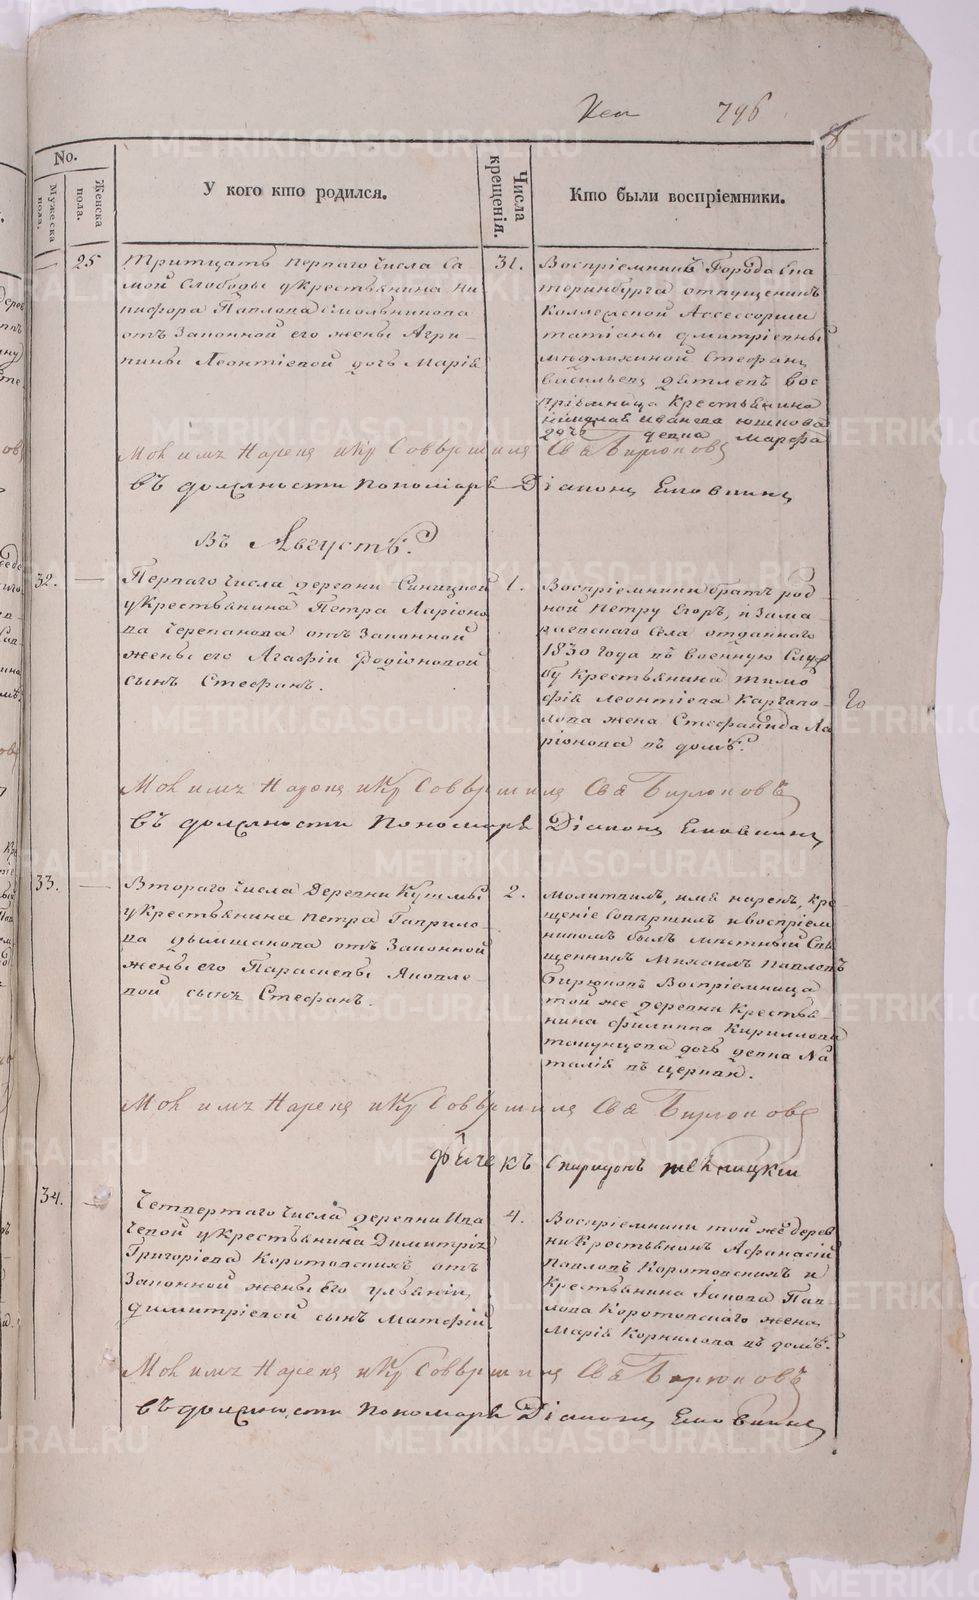 796
No.
Мужеска пола.
Женска пола.
У кого кто родился.
Числа крещенія.
Кто были воспріемники.
25
Тритцать перваго числа Са
мой Слободы у крестьянина Ни
кифора Павлова Смольникова
отъ законной его жены Агри-
пины Леонтіевой дочь Марія
31.
Воспріемникъ Города Ека
теринбурга отпущеникъ
Коллежской Ассесорши
татіаны дмитріевны
Стефанъ
васильевъ дятлевъ вос
пріемница Крестьянина
иванова юшкова
дочь девка Марфа
Мол имъ Нарекъ и Кр Совершилъ Св Бирюковъ
въ должности Пономаря Діаконъ
Въ Августѣ.
32.
—
Перваго числа деревни Синицкой
у Крестьянина Петра Ларіоно
ва Черепанова отъ законной
жены его Агафіи Родіоновой
сынъ Стефанъ.
1.
Воспріемники братъ род
ной Петру Егоръ, и Зама
раевскаго Села отданнаго
1830 года въ военную Служ
бу Крестьянина тимо
фія Леонтіева Каргапо-
лова жена Стефанида Ла
ріонова въ домѣ.
Мол имъ Нарекъ и Кр Совершилъ Св Бирюковъ
въ должности Пономаря Діаконъ
33.
—
Втораго числа Деревни
у Крестьянина Петра Гаврило
ва отъ Законной
жены его Параскевы Яковле-
вой сынъ Стефанъ.
2.
Молитвилъ, имя нарекъ, кре
щеніе Совершилъ и воспріем
никомъ былъ мѣстный Свя
щенникъ Михаилъ Павловъ
Бирюковъ Воспріемница
той же деревни Крестья
нина филиппа Кириллова
дочь девка На
талія въ церкви.
Мол имъ Нарекъ и Кр Совершилъ Св Бирюковъ
Спиридонъ
34.
—
Четвертаго числа деревни Ива
чевой у Крестьянина Димитрія
Григоріева Коротовскихъ отъ
Законной жены Его
Димитріевой сынъ Матфій
4.
Воспріемники той же дерев
ни Крестьянинъ Афанасій
Павловъ Коротовскихъ и
Крестьянина Іакова Пав-
лова Коротовскаго жена
Марія Корнилова въ домѣ.
Мол имъ Нарекъ и Кр Совершилъ Св Бирюковъ
въ должности Пономаря Діаконъ
METRIKI.GASO-URAL.RU